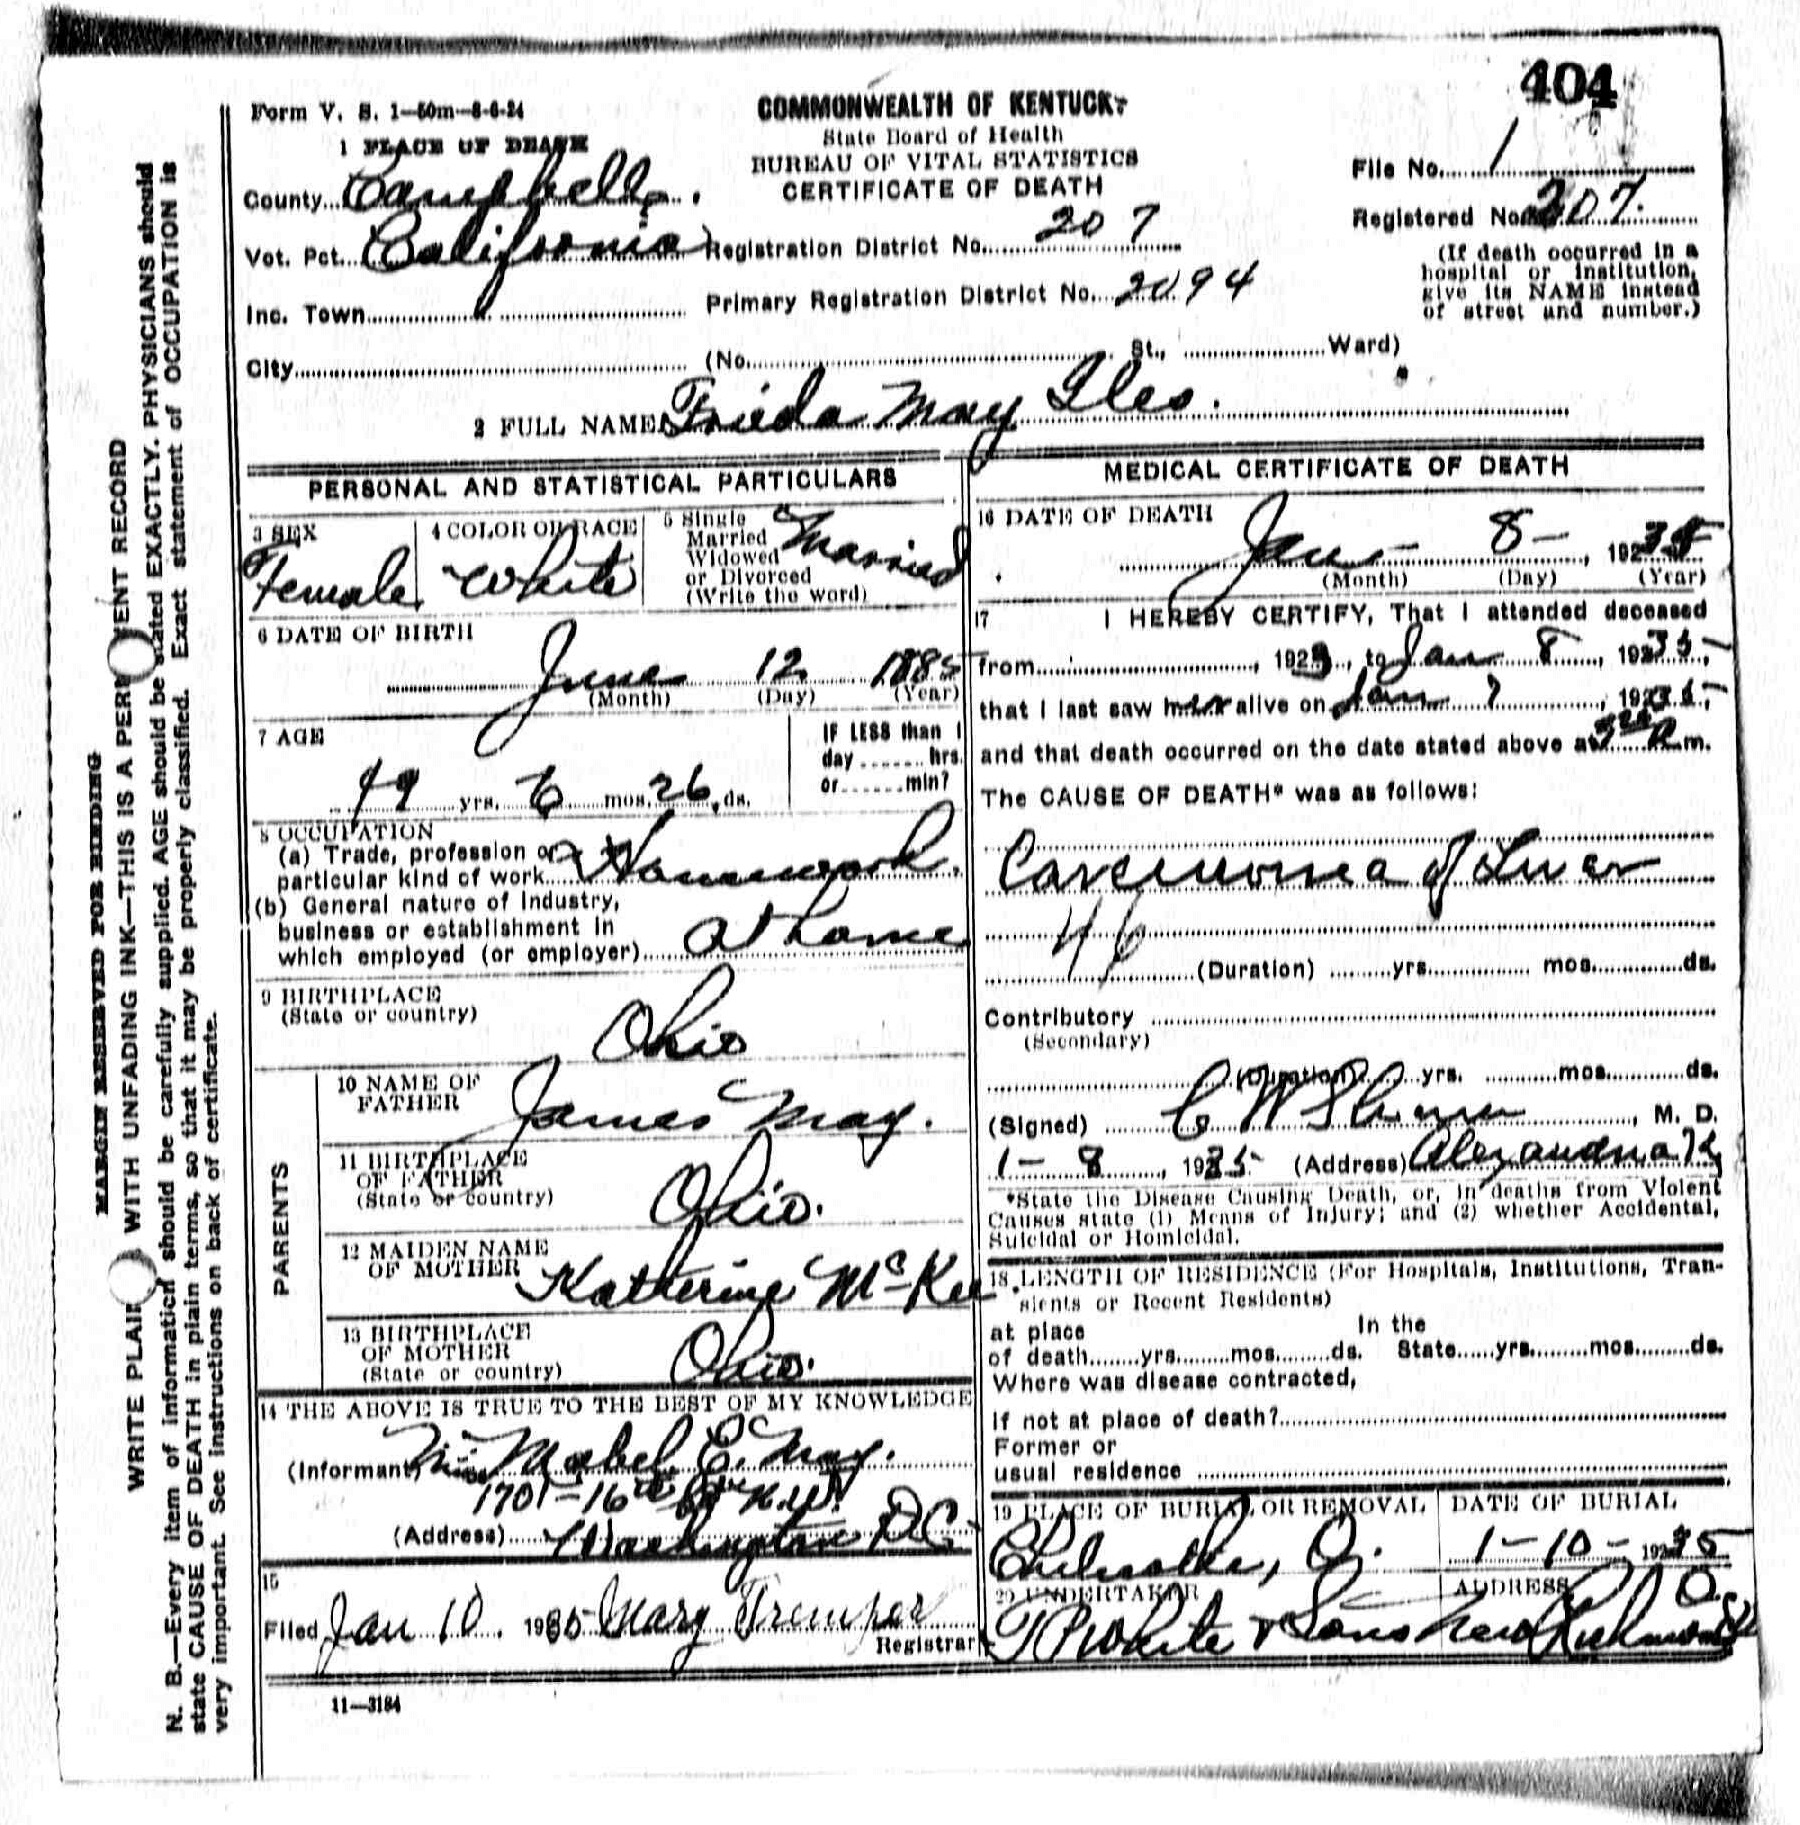 404
Form V. S. 1—50m—8-6-24
COMMONWEALTH OF KENTUCKY
State Board of Health
BUREAU OF VITAL STATISTICS
CERTIFICATE OF DEATH
File No. 1
Registered No. 207.
(If death occurred in a
hospital or institution,
give its NAME instead
of street and number.)
1 PLACE OF DEATH
County Campbell.
Vot. Pct. California
Registration District No. 207
Inc. Town
Primary Registration District No. 2094
City (No. St., Ward)
2 FULL NAME Frieda May Iles.
PERSONAL AND STATISTICAL PARTICULARS
3 SEX
Female
4 COLOR OR RACE
White
5 Single
Married
Widowed
or Divorced
(Write the word)
Married
6 DATE OF BIRTH
June 12 1885
(Month) (Day) (Year)
7 AGE
49 yrs. 6 mos. 26 ds.
IF LESS than 1
day hrs.
or min?
8 OCCUPATION
(a) Trade, profession or
particular kind of work Housework.
(b) General nature of Industry,
business or establishment in
which employed (or employer) at home
9 BIRTHPLACE
(State or country)
Ohio
PARENTS
10 NAME OF
FATHER
James May.
11 BIRTHPLACE
OF FATHER
(State or country)
Ohio.
12 MAIDEN NAME
OF MOTHER
Katherine McKee.
13 BIRTHPLACE
OF MOTHER
(State or country)
Ohio.
14 THE ABOVE IS TRUE TO THE BEST OF MY KNOWLEDGE
(Informant) Miss Mabel E. May.
1701-16th St N.W.
(Address) Washington D.C.
15
Filed Jan 10. 1935 Mary Tremper
Registrar
11—3184
MEDICAL CERTIFICATE OF DEATH
16 DATE OF DEATH
Jan - 8 - , 1935
(Month) (Day) (Year)
17 I HEREBY CERTIFY, That I attended deceased
from , 192 , to Jan 8 , 1935,
that I last saw her alive on Jan 7 , 1935,
and that death occurred on the date stated above at m.
The CAUSE OF DEATH* was as follows:
Carcinoma of Liver
46
(Duration) yrs. mos. ds.
Contributory
(Secondary)
(Duration) yrs. mos. ds.
(Signed) C W , M. D.
1 - 8 , 1935 (Address) Alexandria Ky
*State the Disease Causing Death, or, in deaths from Violent
Causes state (1) Means of Injury; and (2) whether Accidental,
Suicidal or Homicidal.
18. LENGTH OF RESIDENCE (For Hospitals, Institutions, Tran-
sients or Recent Residents)
at place In the
of death yrs. mos. ds. State yrs. mos. ds.
Where was disease contracted,
if not at place of death?
Former or
usual residence
19 PLACE OF BURIAL OR REMOVAL
Chilicothe, O.
DATE OF BURIAL
1 - 10 - 1935
20 UNDERTAKER
T P White & Sons
ADDRESS
New Richmond O.
MARGIN RESERVED FOR BINDING
WRITE PLAIN WITH UNFADING INK—THIS IS A PER ENT RECORD
N. B.—Every item of information should be carefully supplied. AGE should be stated EXACTLY. PHYSICIANS should
state CAUSE OF DEATH in plain terms, so that it may be properly classified. Exact statement of OCCUPATION is
very important. See instructions on back of certificate.